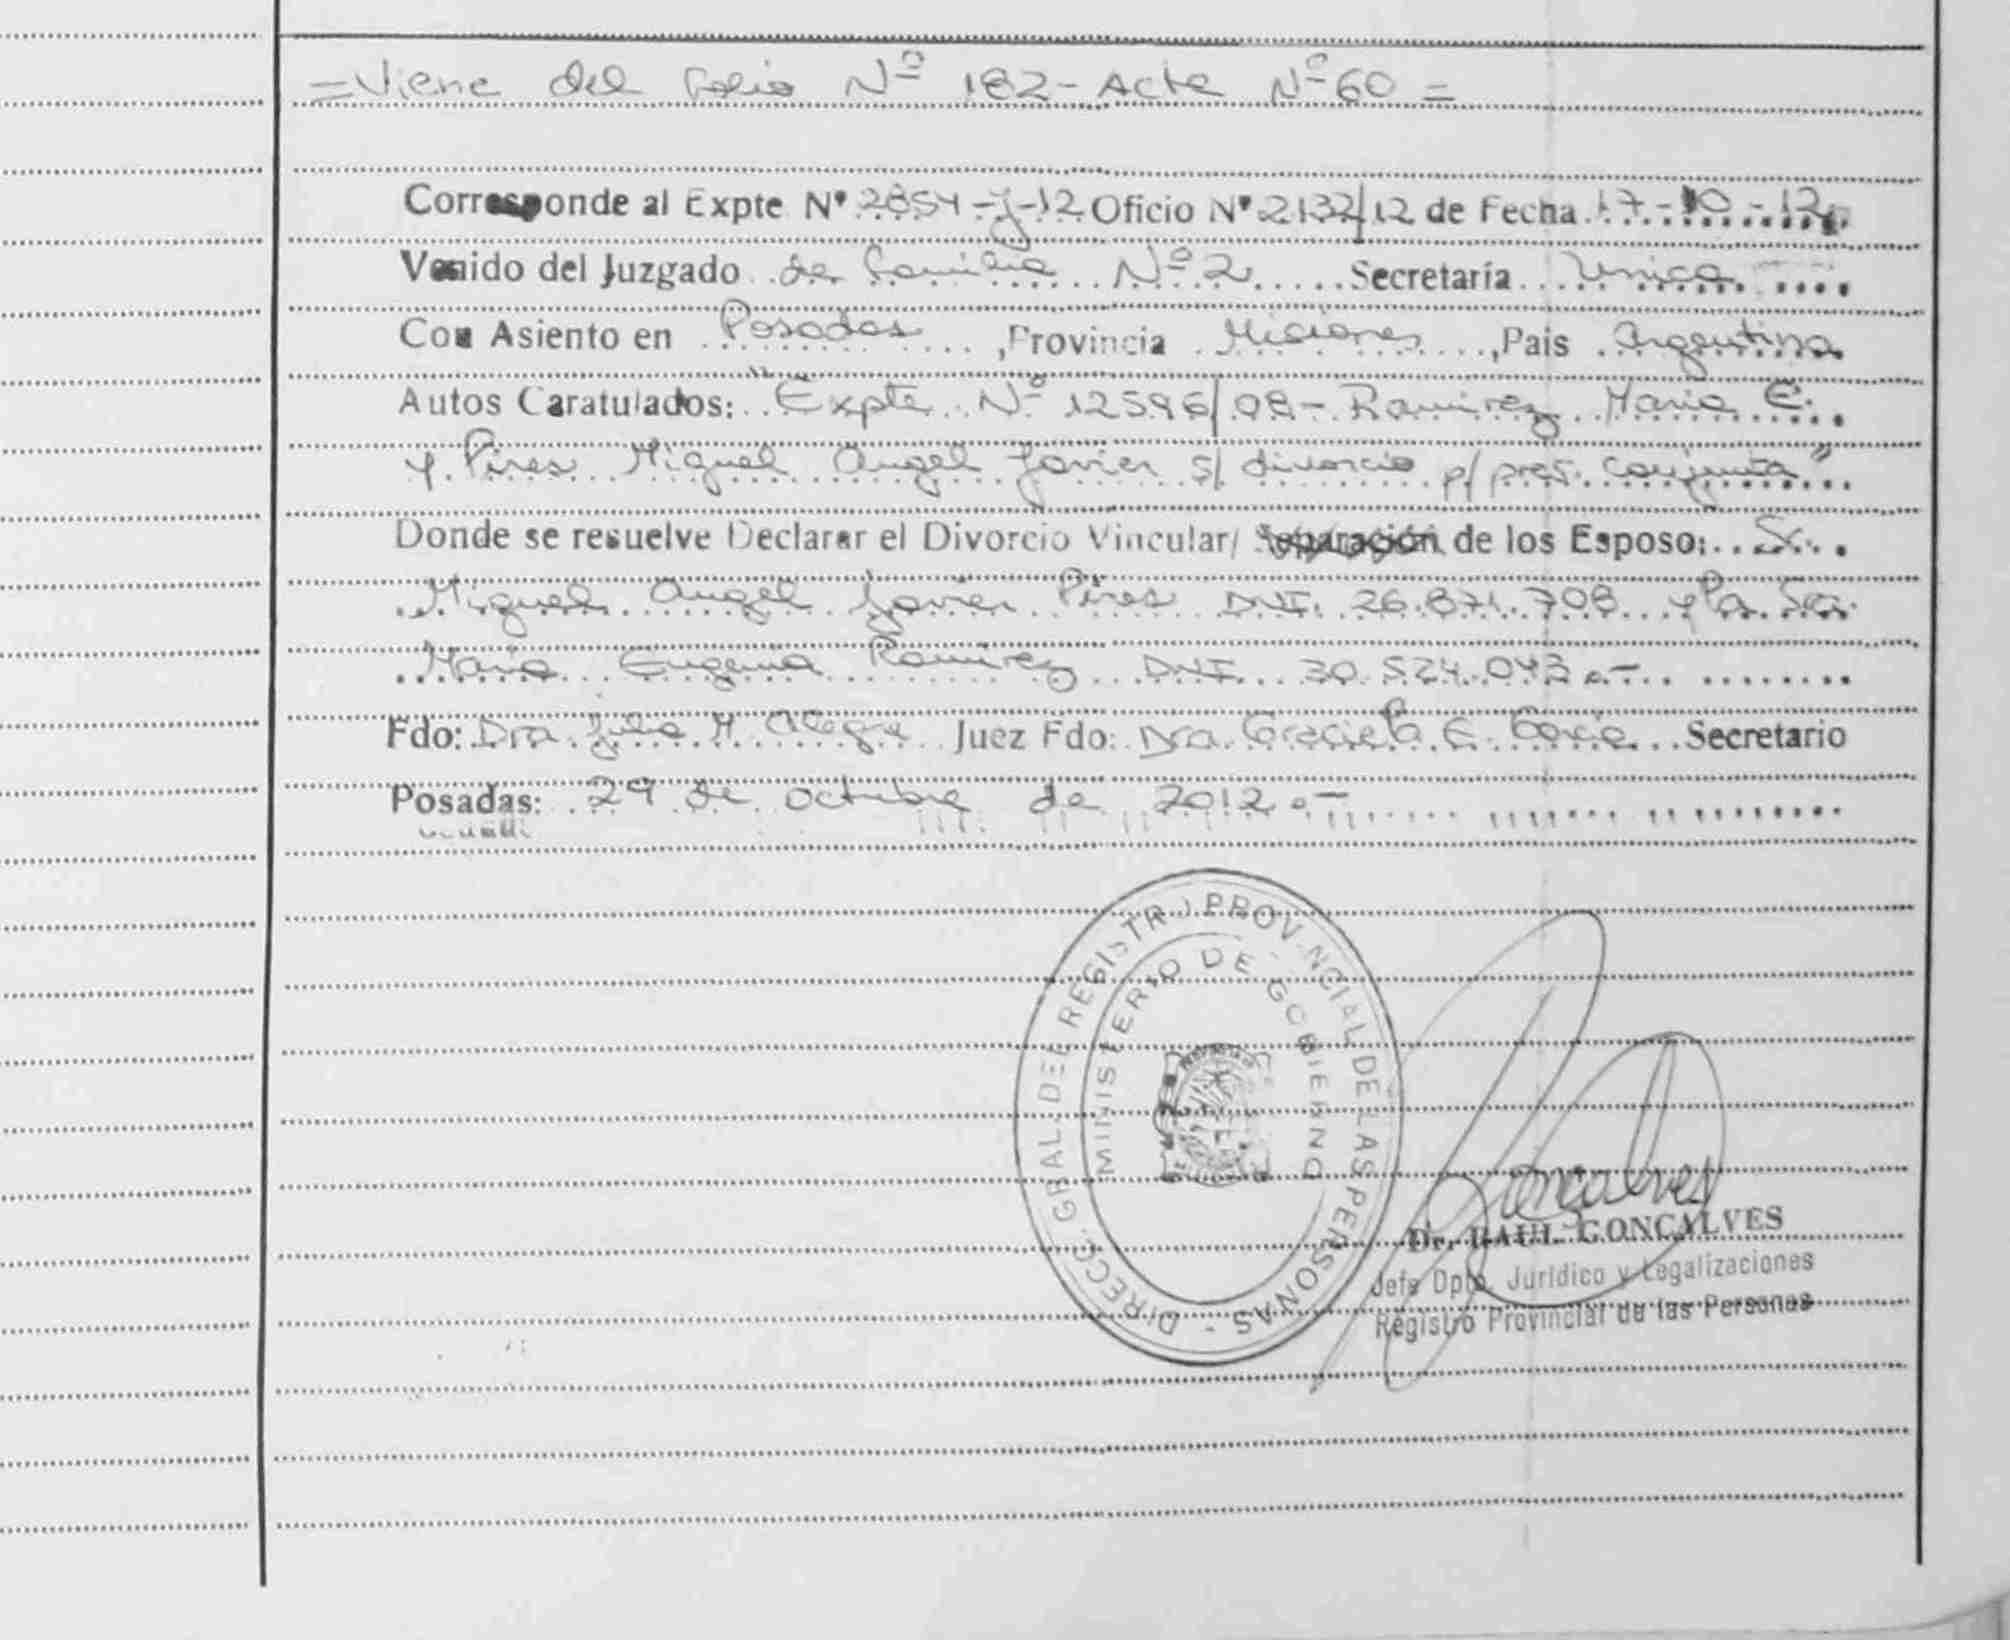 = Viene del Folio Nº 182 - Acta Nº 60 =
Corresponde al Expte Nº 2854-J-12 Oficio Nº 2132/12 de Fecha 17-10-12
Venido del Juzgado de Familia Nº 2 Secretaría Unica
Con Asiento en Posadas, Provincia Misiones, Pais Argentina
Autos Caratulados: "Expte Nº 12596/08 - Ramirez Maria E.
y Pires Miguel Angel Javier s/ divorcio p/ pres. conjunta"
Donde se resuelve Declarar el Divorcio Vincular/ Separación de los Esposo: Sr.
Miguel Angel Javier Pires DNI. 26.871.708 y la Sra.
Maria Eugenia Ramirez DNI 30.524.043.-
Fdo: Dra. Julia M. Alegre Juez Fdo: Dra. Graciela E. Secretario
Posadas: 29 de octubre de 2012.-
DIRECC. GRAL. DEL REGISTRO PROVINCIAL DE LAS PERSONAS -
MINISTERIO DE GOBIERNO
Goncalves
Dr. RAUL GONCALVES
Jefe Dpto. Jurídico y Legalizaciones
Registro Provincial de las Personas